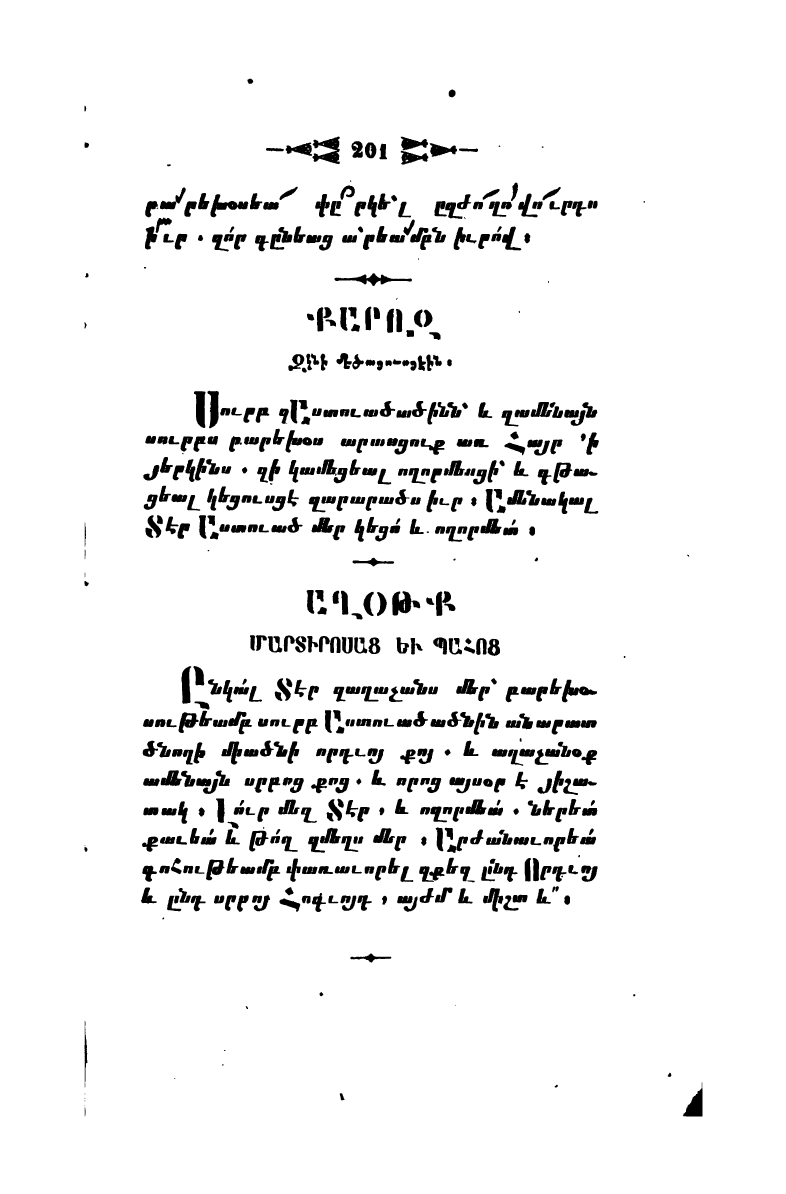 201
բա՛րեխօսեա՛ փըրկե՛լ ըզժո՛ղո՛վո՛ւրդո
ի՛ւր . զոր գընեաց ա՛րեա՛մբն իւրով ։
ՔԱՐՈԶ
Սուրբ զԱստուածածինն՝ և զամենայն
սուրբս բարեխօս արասցուք առ Հայր ՚ի
յերկինս . զի կամեցեալ ողորմեսցի՝ և գթա-
ցեալ կեցուսցէ զարարածս իւր ։ Ամենակալ
Տէր Աստուած մեր կեցո՛ և ողորմեա՛ ։
ԱՂՕԹՔ
ՄԱՐՏԻՐՈՍԱՑ ԵՒ ՊԱՀՈՑ
Ընկա՛լ Տէր զաղաչանս մեր՝ բարեխօ-
սութեամբ սուրբ Աստուածածնին անարատ
ծնողի միածնի որդւոյ քոյ . և աղաչանօք
ամենայն սրբոց քոց . և որոց այսօր է յիշա-
տակ ։ Լո՛ւր մեզ Տէր , և ողորմեա՛ . ներեա՛
քաւեա՛ և թո՛ղ զմեղս մեր ։ Արժանաւորեա՛
գոհութեամբ փառաւորել զքեզ ընդ Որդւոյ
և ընդ սրբոյ Հոգւոյդ , այժմ և միշտ և" ։